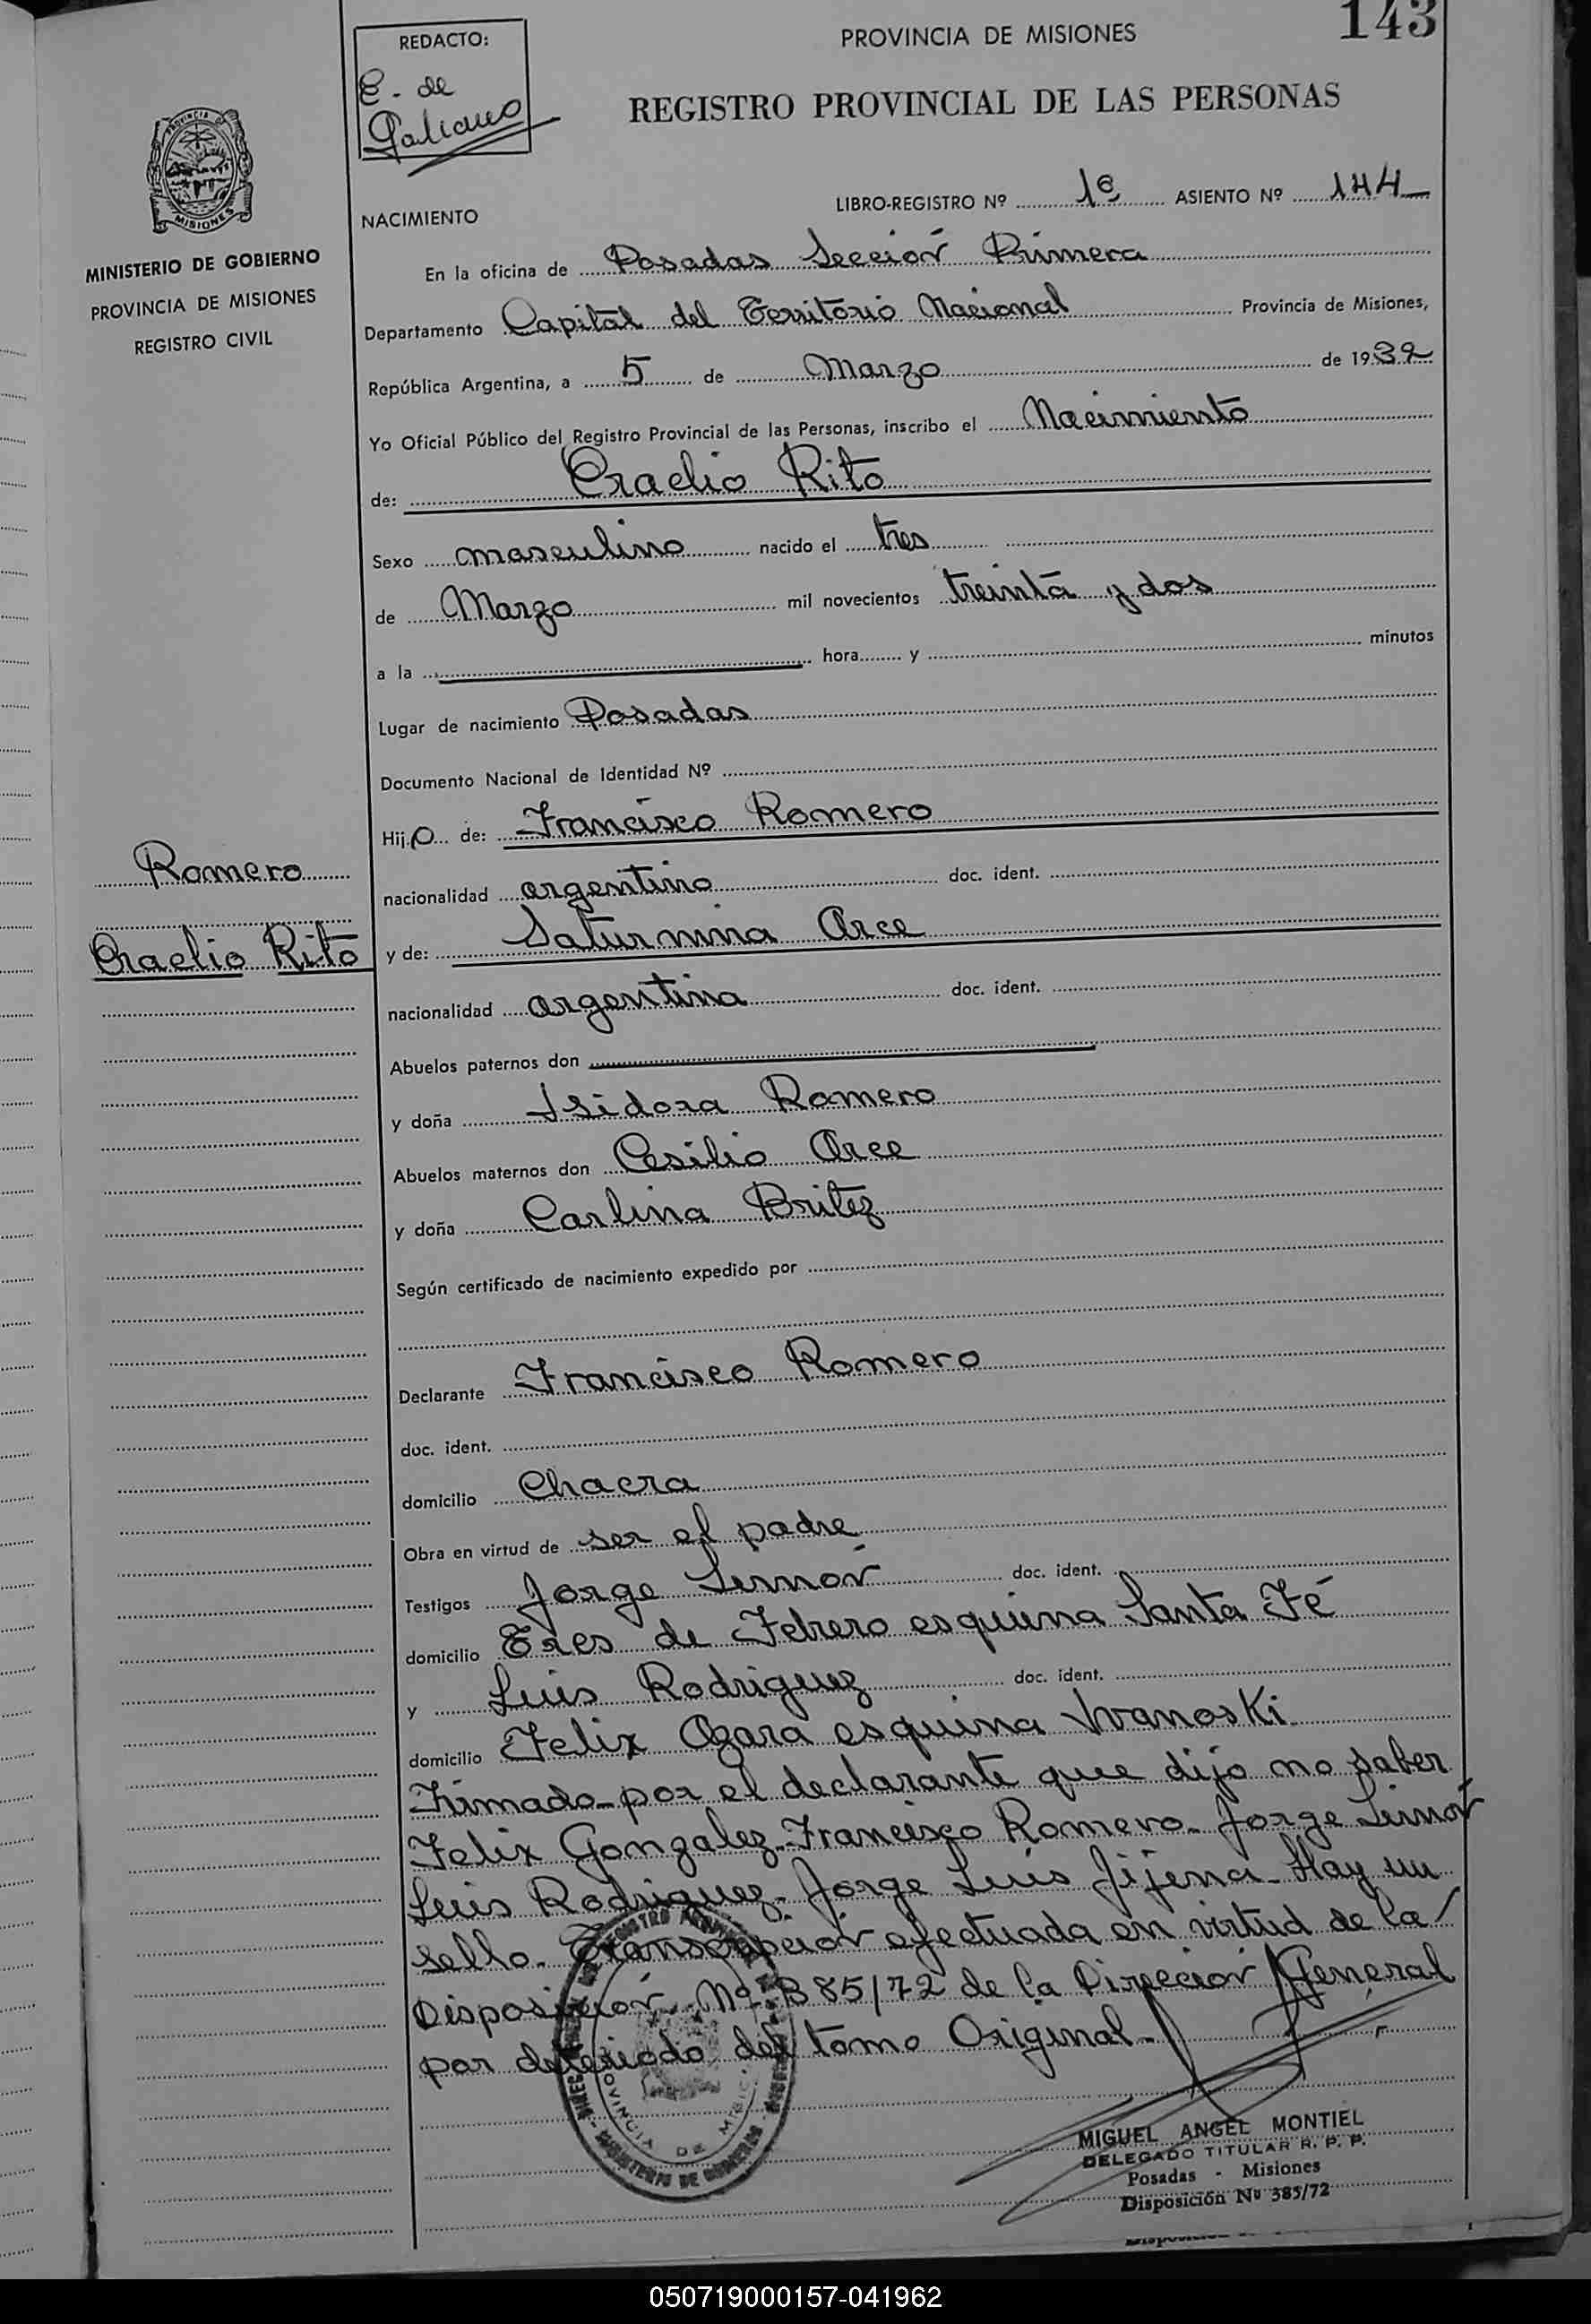 143
REDACTO:
E. de
Galiano
PROVINCIA DE MISIONES
REGISTRO PROVINCIAL DE LAS PERSONAS
PROVINCIA DE
MISIONES
MINISTERIO DE GOBIERNO
PROVINCIA DE MISIONES
REGISTRO CIVIL
NACIMIENTO
LIBRO-REGISTRO Nº 1º ASIENTO Nº 144
En la oficina de Posadas Sección Primera
Departamento Capital del Territorio Nacional Provincia de Misiones,
República Argentina, a 5 de Marzo de 1932
Yo Oficial Público del Registro Provincial de las Personas, inscribo el Nacimiento
de: Eraclio Rito
Sexo masculino nacido el tres
de Marzo mil novecientos treinta y dos
a la hora y minutos
Lugar de nacimiento Posadas
Documento Nacional de Identidad Nº
Hijo de: Francisco Romero
nacionalidad argentino doc. ident.
Romero
Eraclio Rito
y de: Saturnina Arce
nacionalidad argentina doc. ident.
Abuelos paternos don
y doña Isidora Romero
Abuelos maternos don Cesilio Arce
y doña Carlina Britez
Según certificado de nacimiento expedido por
Declarante Francisco Romero
doc. ident.
domicilio Chacra
Obra en virtud de ser el padre
Testigos Jorge Simón doc. ident.
domicilio Tres de Febrero esquina Santa Fé
y Luis Rodriguez doc. ident.
domicilio Felix Azara esquina Ivanoski
Firmado por el declarante que dijo no saber
Felix Gonzalez. Francisco Romero. Jorge Simón
Luis Rodriguez. Jorge Luis Jijena. Hay un
sello. Transcripción efectuada en virtud de la
Disposición Nº B 85/72 de la Dirección General
por deteriodo del tomo Original.
PROVINCIA DE MISIONES
MINISTERIO DE GOBIERNO
MIGUEL ANGEL MONTIEL
DELEGADO TITULAR R. P. P.
Posadas - Misiones
Disposición Nº 385/72
050719000157-041962